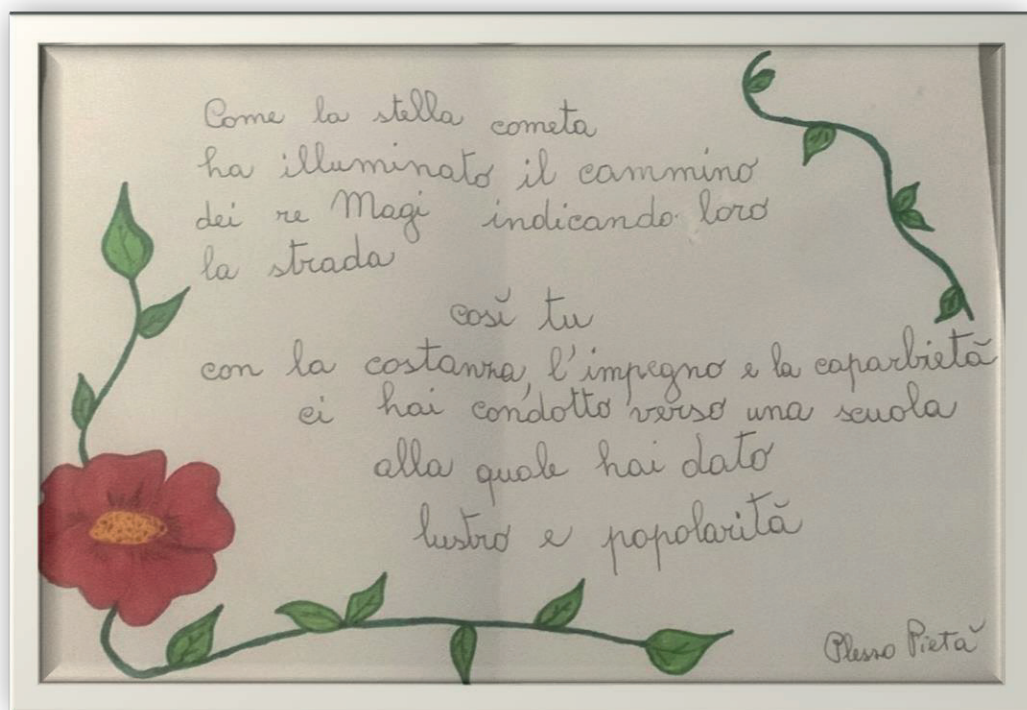 Come la stella cometa
ha illuminato il cammino
dei re Magi indicando loro
la strada
così tu
con la costanza, l'impegno e la caparbietà
ci hai condotto verso una scuola
alla quale hai dato
lustro e popolarità
Plesso Pietà